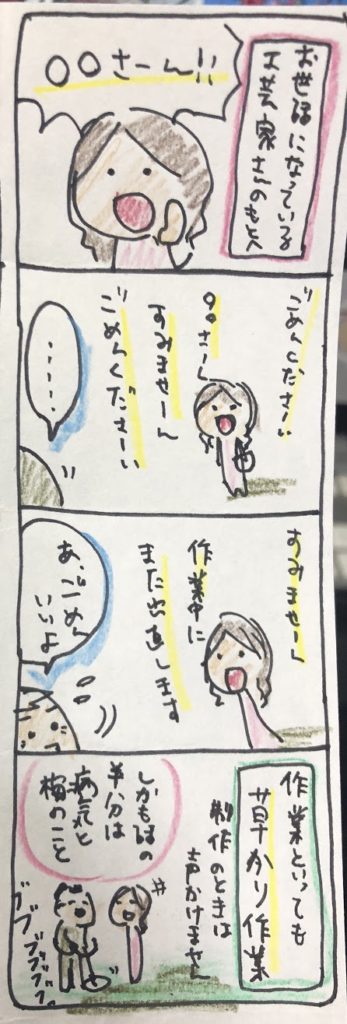 お世話になっている
工芸家さんのもとへ
○○さーん!!
ごめんくださーい
○○さーん
すみませーん
ごめんくださーい
・・・・・・
すみませーん
作業中に
また出直します
あ、ごめん
いいよ
作業といっても
草かり作業
制作のときは
声かけません
しかも話の
半分は
病気と
梅のこと
ブブブブブブ